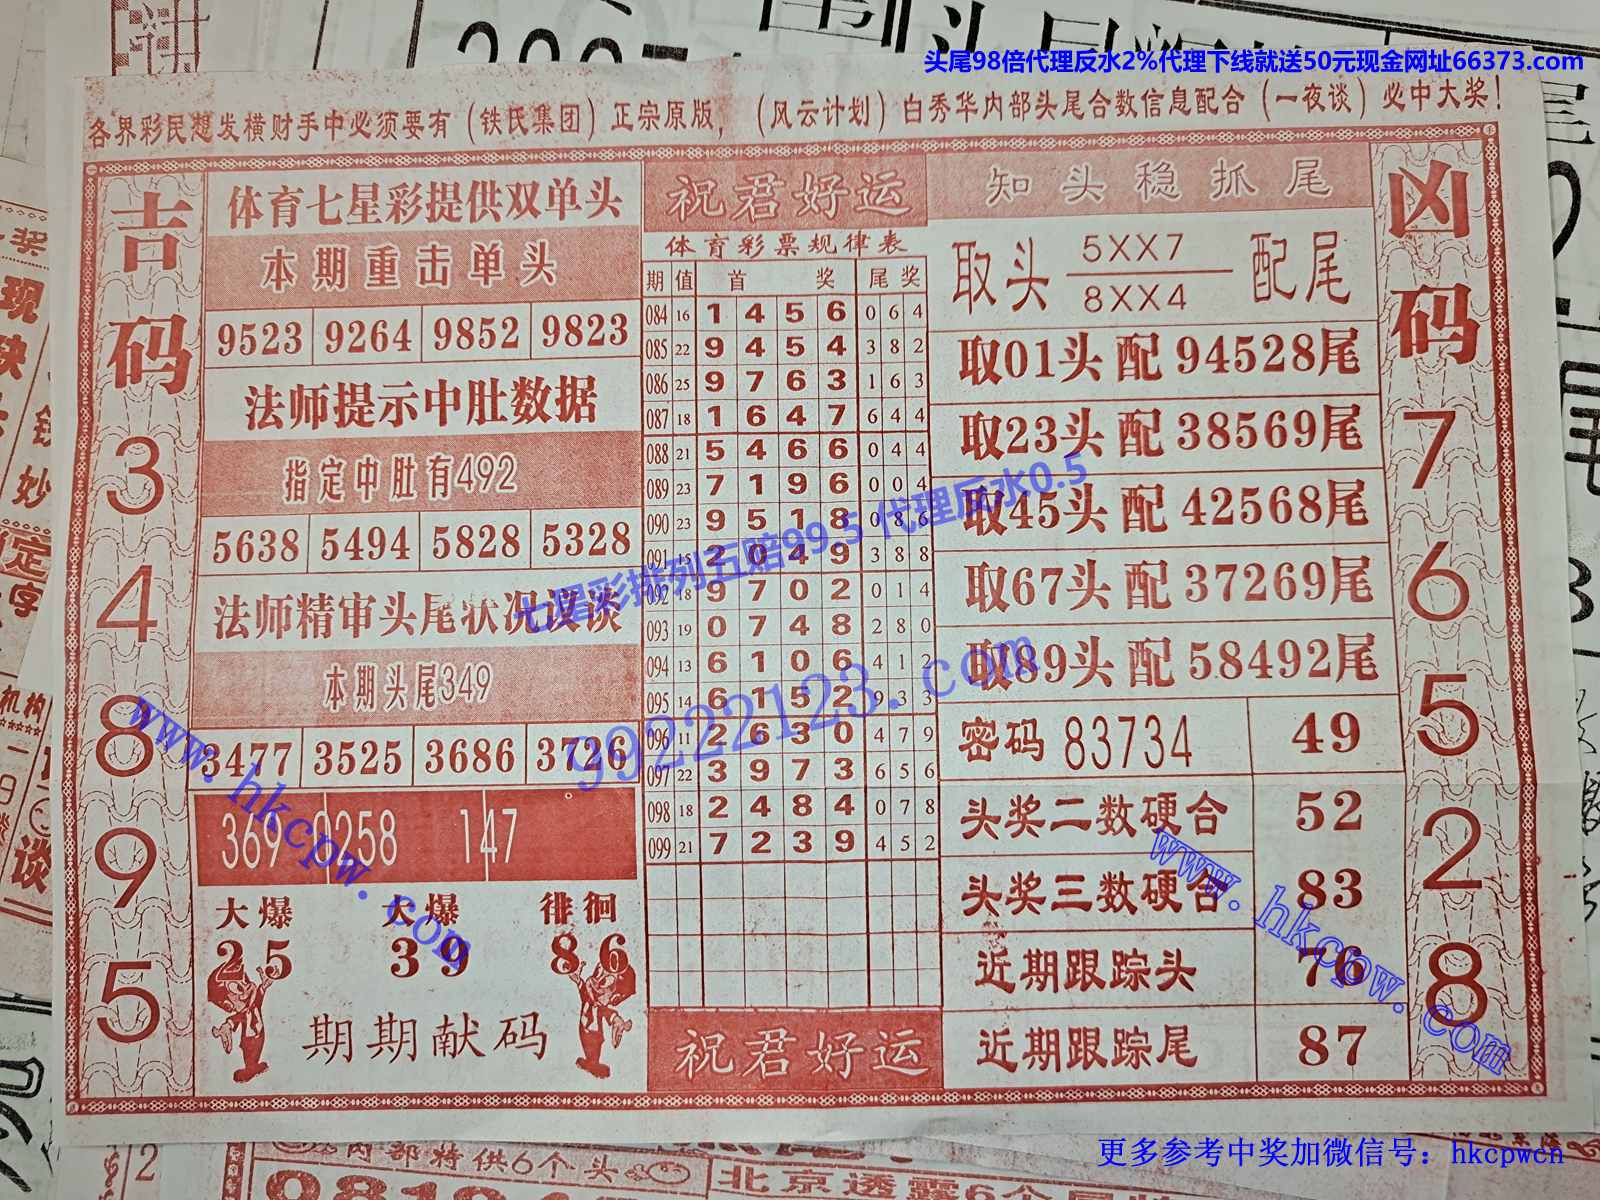 头尾98倍代理反水2%代理下线就送50元现金网址66373.com
各界彩民想发横财手中必须要有（铁氏集团）正宗原版，（风云计划）白秀华内部头尾合数信息配合（一夜谈）必中大奖！
吉码
3
4
8
9
5
体育七星彩提供双单头
本期重击单头
9523 9264 9852 9823
法师提示中肚数据
指定中肚有492
5638 5494 5828 5328
法师精审头尾状况谈
本期头尾349
3477 3525 3686 3726
369 0258 147
大爆 大爆 徘徊
25 39 86
期期献码
祝君好运
体育彩票规律表
期 值 首 奖 尾 奖
084 16 1 4 5 6 0 6 4
085 22 9 4 5 4 3 8 2
086 25 9 7 6 3 1 6 3
087 18 1 6 4 7 6 4 4
088 21 5 4 6 6 0 4 4
089 23 7 1 9 6 0 0 4
090 23 9 5 1 8 0 8 6
091 15 2 0 4 9 3 8 8
092 18 9 7 0 2 0 1 4
093 19 0 7 4 8 2 8 0
094 13 6 1 0 6 4 1 2
095 14 6 1 5 2 9 3 3
096 11 2 6 3 0 4 7 9
097 22 3 9 7 3 6 5 6
098 18 2 4 8 4 0 7 8
099 21 7 2 3 9 4 5 2
祝君好运
知头稳抓尾
取头 5XX7 配尾
8XX4
取01头 配 94528尾
取23头 配 38569尾
取45头 配 42568尾
取67头 配 37269尾
取89头 配 58492尾
密码 83734 49
头奖二数硬合 52
头奖三数硬合 83
近期跟踪头 76
近期跟踪尾 87
凶码
7
6
5
2
8
七星彩排列五赔99.5 代理反水0.5
99222123.com
www.hkcpw.com
www.hkcpw.com
更多参考中奖加微信号：hkcpwcn
内部特供6个头
北京透露6个尾